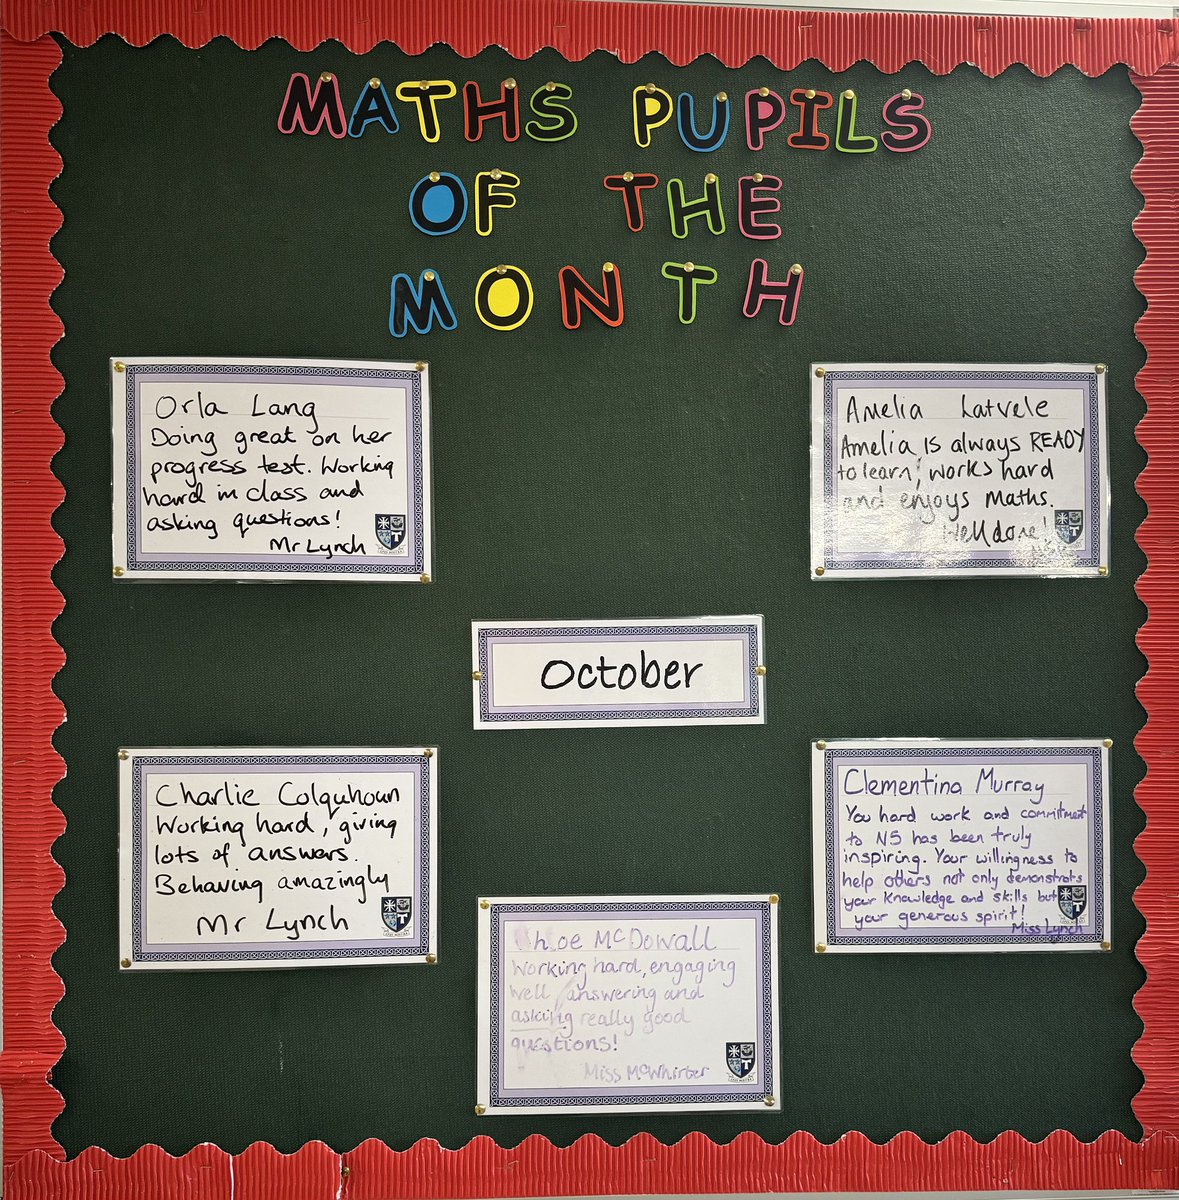 MATHS PUPILS
OF THE
MONTH
Orla Lang
Doing great on her
progress test. Working
hard in class and
asking questions!
Mr Lynch
Amelia Latvele
Amelia is always READY
to learn, works hard
and enjoys Maths.
Well done!
October
Charlie Colquhoun
Working hard, giving
lots of answers.
Behaving amazingly
Mr Lynch
Clementina Murray
You hard work and commitment
to N5 has been truly
inspiring. Your willingness to
help others not only demonstrats
your knowledge and skills but
your generous spirit!
Miss Lynch
Chloe McDowall
Working hard, engaging
well, answering and
asking really good
questions!
Miss McWhirter